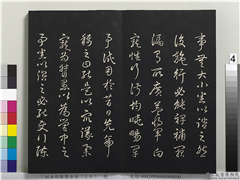 事無大小悉以諮之然
後施行必能裨補闕
漏有所廣益將軍向
寵性行淑均曉暢軍
事試用於昔日先帝
稱之曰能是以眾議舉
寵為督愚以為營中之
事悉以諮之必能使行陣